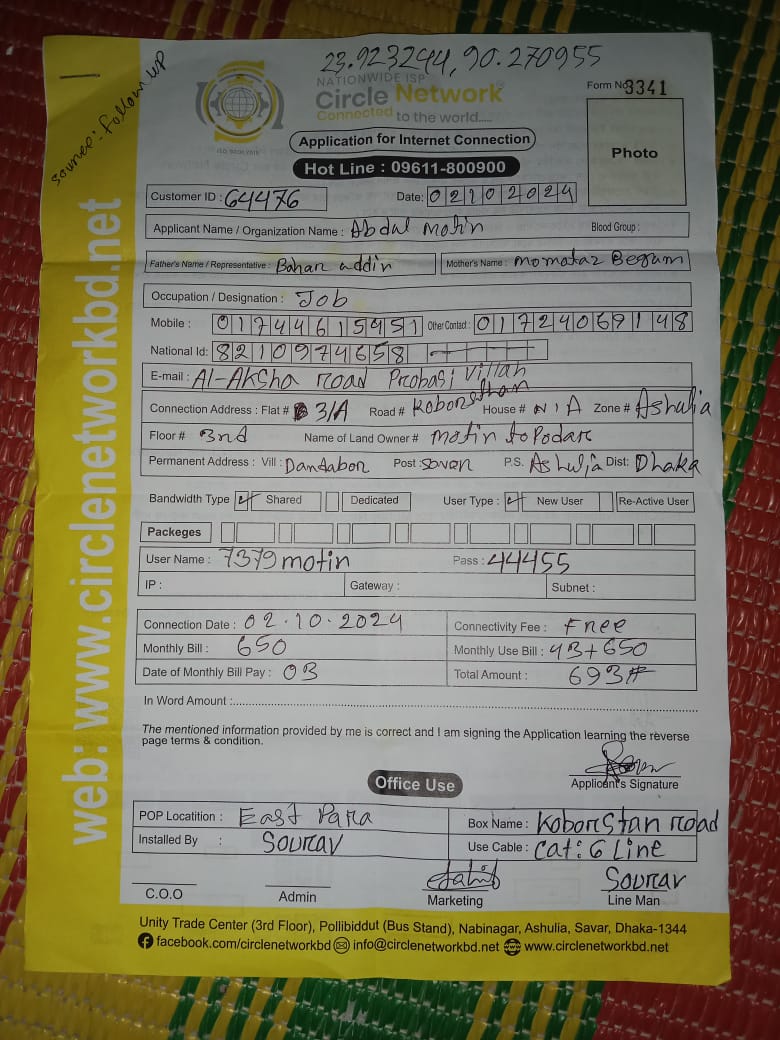 23.923244, 90.270955
source: Follow up
NATIONWIDE ISP
Circle Network
Connected to the world.....
ISO 9001:2015
Form No 3341
Application for Internet Connection
Photo
Hot Line : 09611-800900
Customer ID : 64476
Date: 02102024
Applicant Name / Organization Name : Abdul motin
Blood Group :
Father's Name / Representative : Bahar addin
Mother's Name : momataz Begum
Occupation / Designation : Job
Mobile : 01744615451
Other Contact : 01724069148
National Id: 8210974658
E-mail : Al-Aksha road Probasi Villah
Connection Address : Flat # 3/A Road # Kobonsthan House # N/A Zone # Ashulia
Floor # 3nd Name of Land Owner # motin to Podar
Permanent Address : Vill : Dandabor Post : Saver P.S. Ashulia Dist: Dhaka
Bandwidth Type Shared Dedicated User Type : New User Re-Active User
Packeges
User Name : 7379motin Pass : 44455
IP : Gateway : Subnet :
Connection Date : 02.10.2024 Connectivity Fee : Free
Monthly Bill : 650 Monthly Use Bill : 43+650
Date of Monthly Bill Pay : 03 Total Amount : 693#
In Word Amount :
The mentioned information provided by me is correct and I am signing the Application learning the reverse
page terms & condition.
Applicant's Signature
Office Use
POP Locatition : East Para Box Name : Koborstan road
Installed By : Sourav Use Cable : Cat: 6 Line
Sourav
C.O.O Admin Marketing Line Man
Unity Trade Center (3rd Floor), Pollibiddut (Bus Stand), Nabinagar, Ashulia, Savar, Dhaka-1344
facebook.com/circlenetworkbd info@circlenetworkbd.net www.circlenetworkbd.net
web: www.circlenetworkbd.net